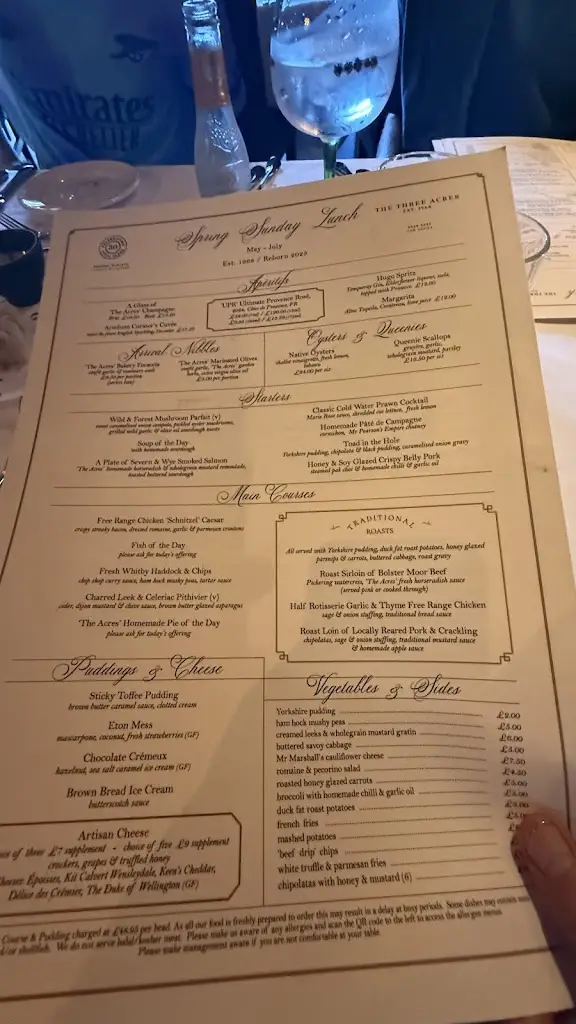 Emirates
Spring Sunday Lunch
May - July
Est. 1968 / Reborn 2023
THE THREE ACRES
EST. 1968
Apéritifs
A Glass of
'The Acres' Champagne
UPR' Ultimate Provence Rosé,
2024, Côtes de Provence, FR
Hugo Spritz
Tanqueray Gin, Elderflower liqueur, soda,
topped with Prosecco £12.00
Margarita
Altos Tequila, Cointreau, lime juice £12.00
Arrival Nibbles
'The Acres' Bakery Focaccia
'The Acres' Marinated Olives
£5.00 per portion
Oysters & Queenies
Native Oysters
shallot vinaigrette, fresh lemon,
tabasco
£24.00 per six
Queenie Scallops
gruyère, garlic,
wholegrain mustard, parsley
£16.50 per six
Starters
Wild & Forest Mushroom Parfait (v)
sweet caramelised onion compote, pickled oyster mushrooms,
grilled wild garlic & olive oil sourdough toasts
Soup of the Day
with homemade sourdough
A Plate of Severn & Wye Smoked Salmon
'The Acres' homemade horseradish & wholegrain mustard remoulade,
toasted buttered sourdough
Classic Cold Water Prawn Cocktail
Marie Rose sauce, shredded cos lettuce, fresh lemon
Homemade Pâté de Campagne
cornichon, Mr Pearson's Empire chutney
Toad in the Hole
Yorkshire pudding, chipolata & black pudding, caramelised onion gravy
Honey & Soy Glazed Crispy Belly Pork
steamed pak choi & homemade chilli & garlic oil
Main Courses
Free Range Chicken 'Schnitzel' Caesar
crispy streaky bacon, dressed romaine, garlic & parmesan croutons
Fish of the Day
please ask for today's offering
Fresh Whitby Haddock & Chips
chip shop curry sauce, ham hock mushy peas, tartar sauce
Charred Leek & Celeriac Pithivier (v)
cider, dijon mustard & chive sauce, brown butter glazed asparagus
'The Acres' Homemade Pie of the Day
please ask for today's offering
TRADITIONAL
ROASTS
All served with Yorkshire pudding, duck fat roast potatoes, honey glazed
parsnips & carrots, buttered cabbage, roast gravy
Roast Sirloin of Bolster Moor Beef
Pickering watercress, 'The Acres' fresh horseradish sauce
(served pink or cooked through)
Half Rotisserie Garlic & Thyme Free Range Chicken
sage & onion stuffing, traditional bread sauce
Roast Loin of Locally Reared Pork & Crackling
chipolatas, sage & onion stuffing, traditional mustard sauce
& homemade apple sauce
Puddings & Cheese
Sticky Toffee Pudding
brown butter caramel sauce, clotted cream
Eton Mess
mascarpone, coconut, fresh strawberries (GF)
Chocolate Crémeux
hazelnut, sea salt caramel ice cream (GF)
Brown Bread Ice Cream
butterscotch sauce
Artisan Cheese
of three £7 supplement - choice of five £9 supplement
crackers, grapes & truffled honey
Époisses, Kit Calvert Wensleydale, Keen's Cheddar,
Délice des Crémier, The Duke of Wellington (GF)
Vegetables & Sides
Yorkshire pudding £2.00
ham hock mushy peas £5.00
creamed leeks & wholegrain mustard gratin £6.00
buttered savoy cabbage £5.00
Mr Marshall's cauliflower cheese £7.50
romaine & pecorino salad £4.50
roasted honey glazed carrots £5.00
broccoli with homemade chilli & garlic oil £5.00
duck fat roast potatoes
french fries
mashed potatoes
'beef drip' chips
white truffle & parmesan fries
chipolatas with honey & mustard (6)
Course & Pudding charged at £46.95 per head. As all our food is freshly prepared to order this may result in a delay at busy periods. Some dishes may contain
shellfish. We do not serve halal/kosher meat. Please make us aware of any allergies and scan the QR code to the left to access the allergen menus.
Please make management aware if you are not comfortable at your table.